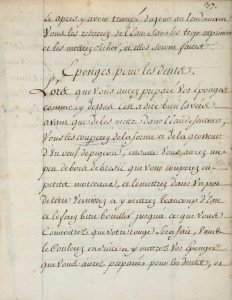 37.
et apres y avoir trempé du jour au lendemain
Vous les retirerez de l'eau sans les trop exprimer
et les mettrez secher, et elles seront faites.
Eponges pour les dents.
Lors que vous aurez preparé vos éponges
comme cy dessus c'est a dire bien lavées
avant que de les mettre dans l'eau de senteur,
Vous les couperez de la forme et de la grosseur
d'un oeuf de pigeon, ensuite vous aurez un
peu de bois de bresil que vous couperez en
petits morceaux, et le mettrez dans un pot
de terre vernissé, et y mettrez beaucoup d'eau
et le ferez bien bouillir jusqu'a ce que vous
connoitrez que votre rouge soit fait, vous
le coulerez ensuite et y mettrez vos éponges
que vous aurez preparées pour les dents, et